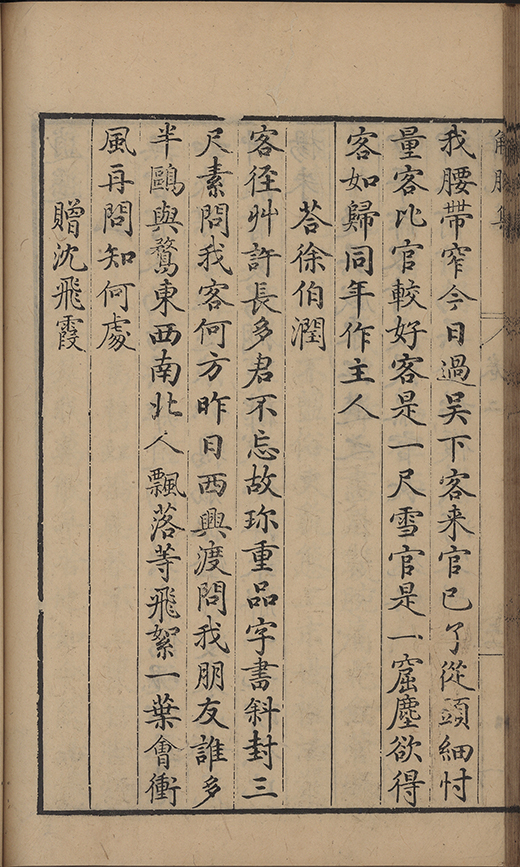 我腰帶窄今日過吴下客来官已了從頭細忖
量客比官較好客是一尺雪官是一窟塵欲得
客如歸同年作主人
荅徐伯潤
客徑艸許長多君不忘故珎重品字書斜封三
尺素問我客何方昨日西興渡問我朋友誰多
半鷗與鶩東西南北人飄落等飛絮一葉會衝
風再問知何處
贈沈飛霞